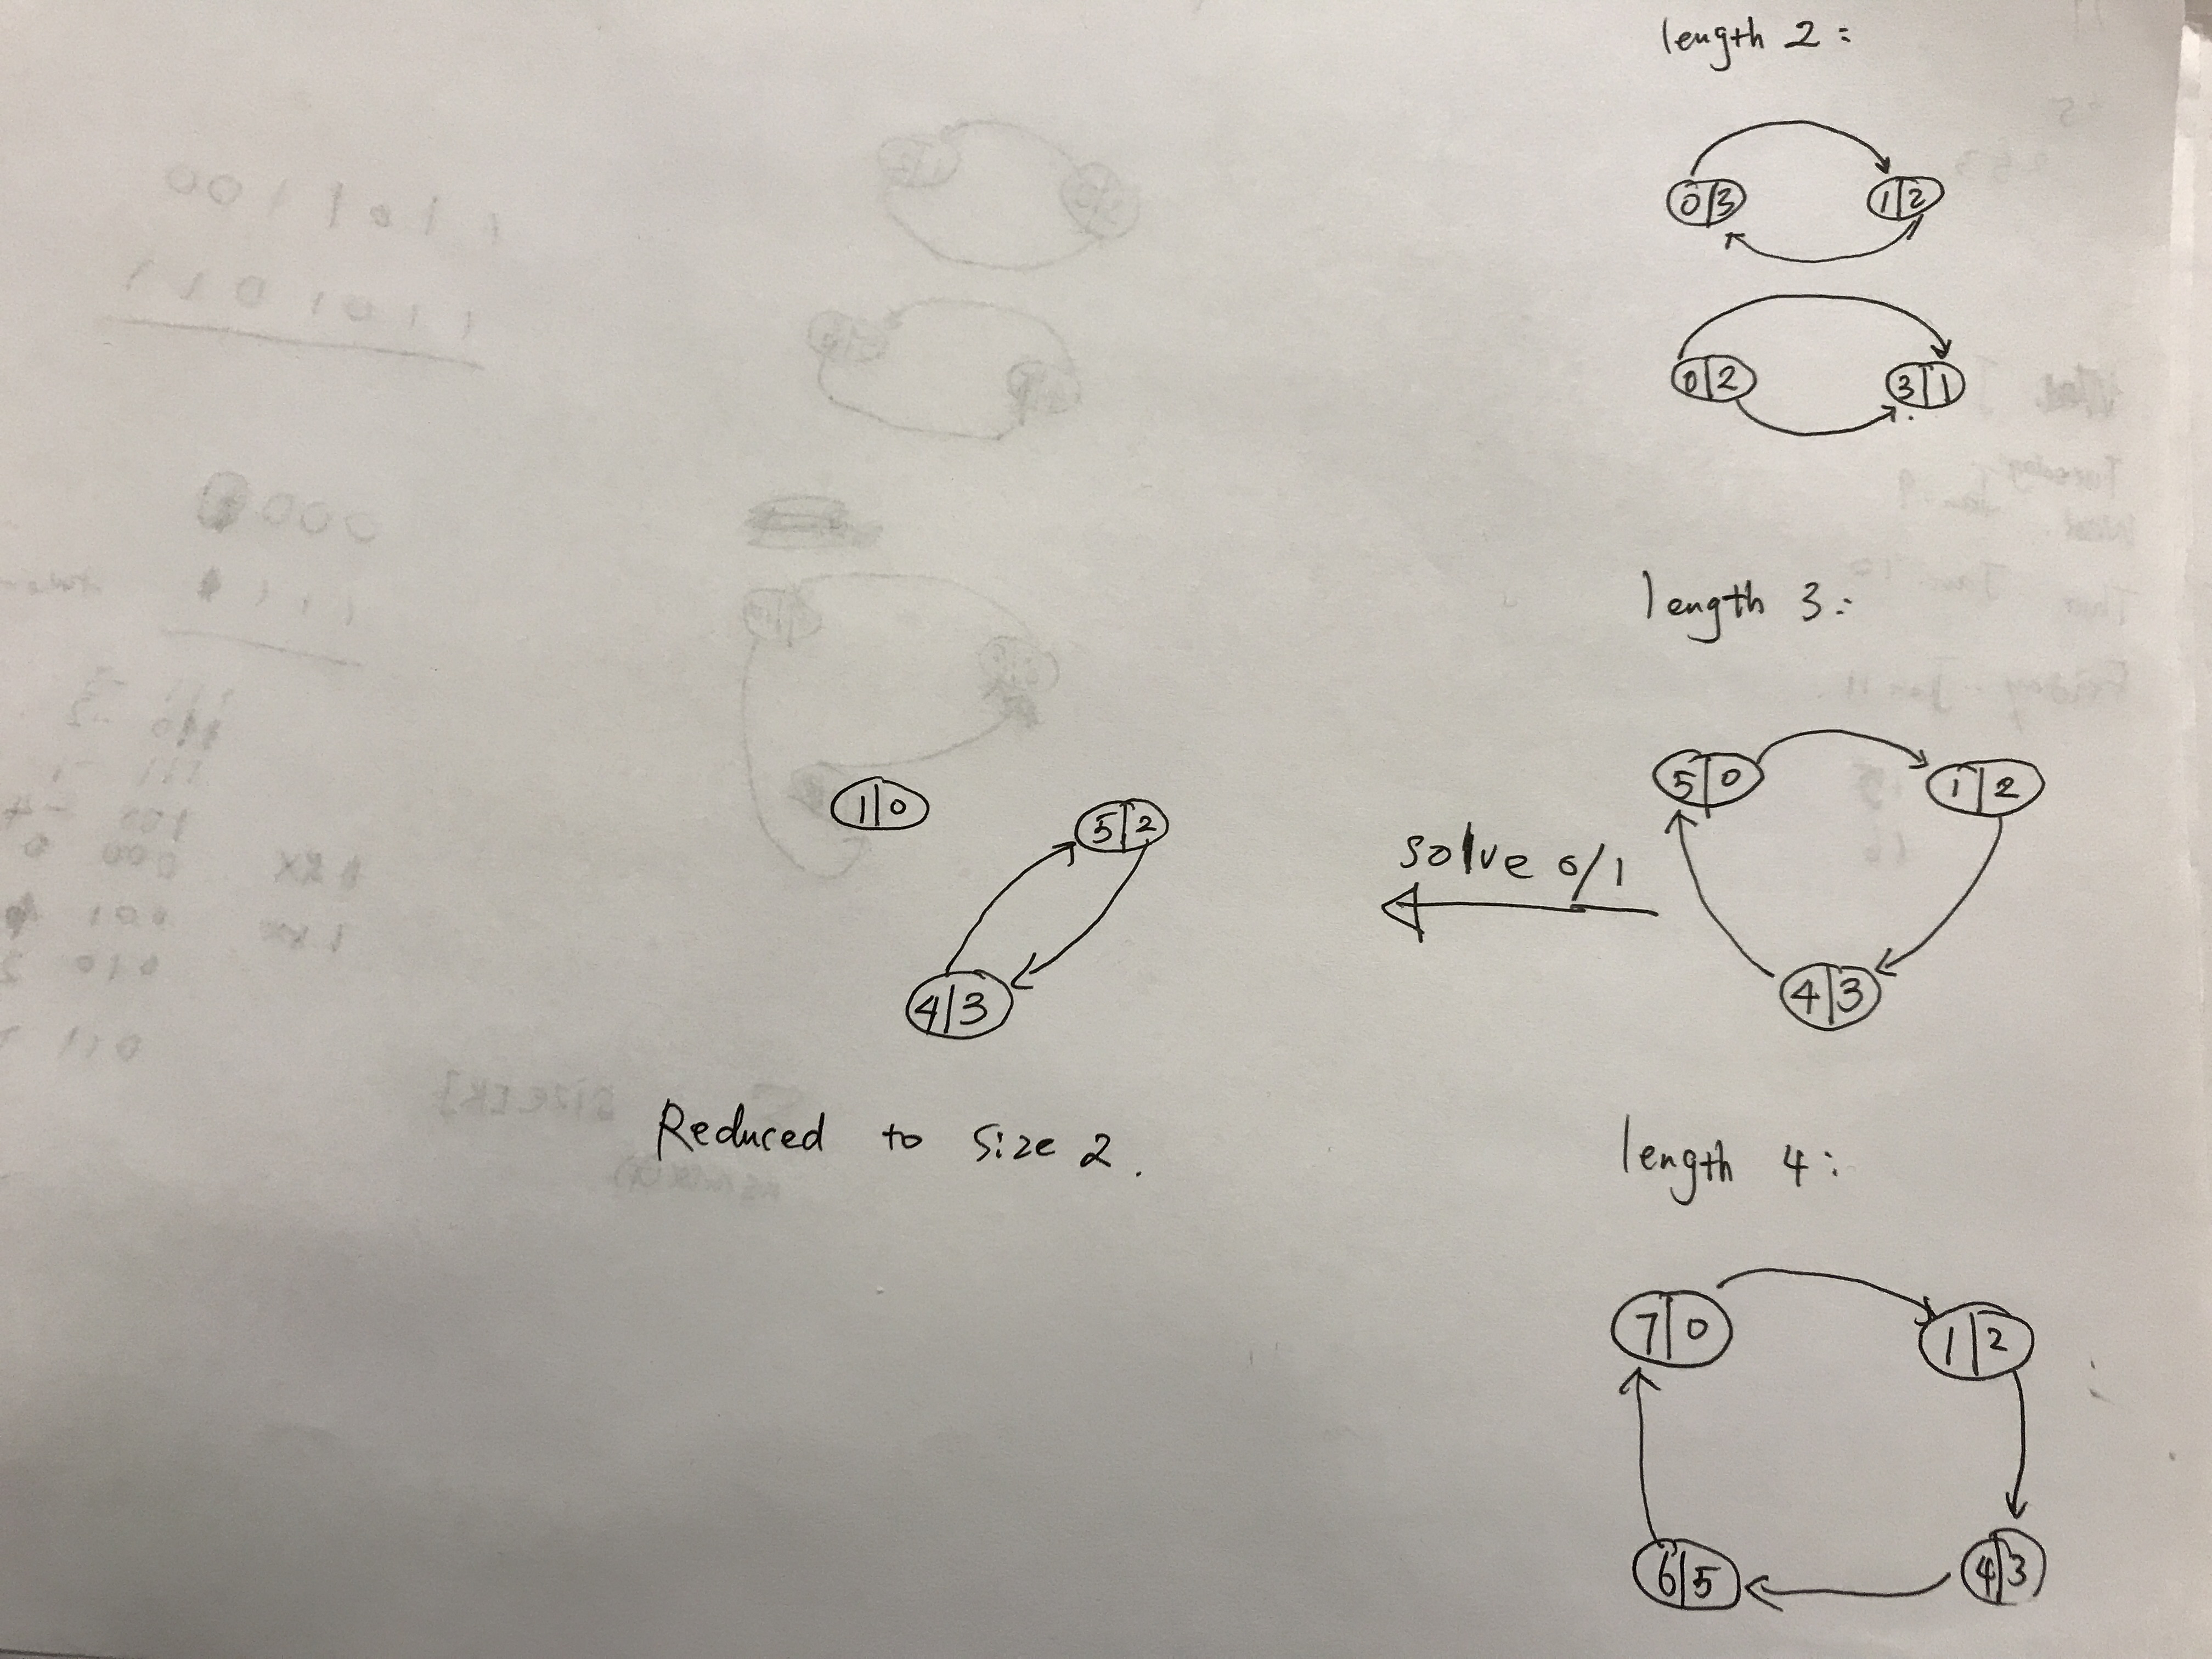 length 2:
0|3 1|2
0|2 3|1
length 3:
5|0 1|2
4|3
solve 0/1
1|0 5|2
4|3
Reduced to size 2.
length 4:
7|0 1|2
6|5 4|3